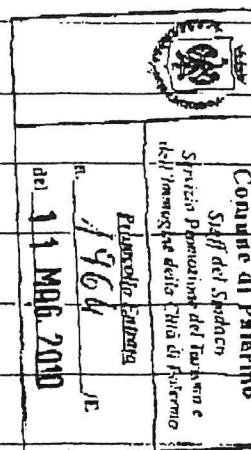 Comune di Palermo
Staff del Sindaco
Servizio Promozione del Turismo e
dell'Immagine della Città di Palermo
Protocollo Entrata
n. 1964 /E
del 11 MAG. 2010